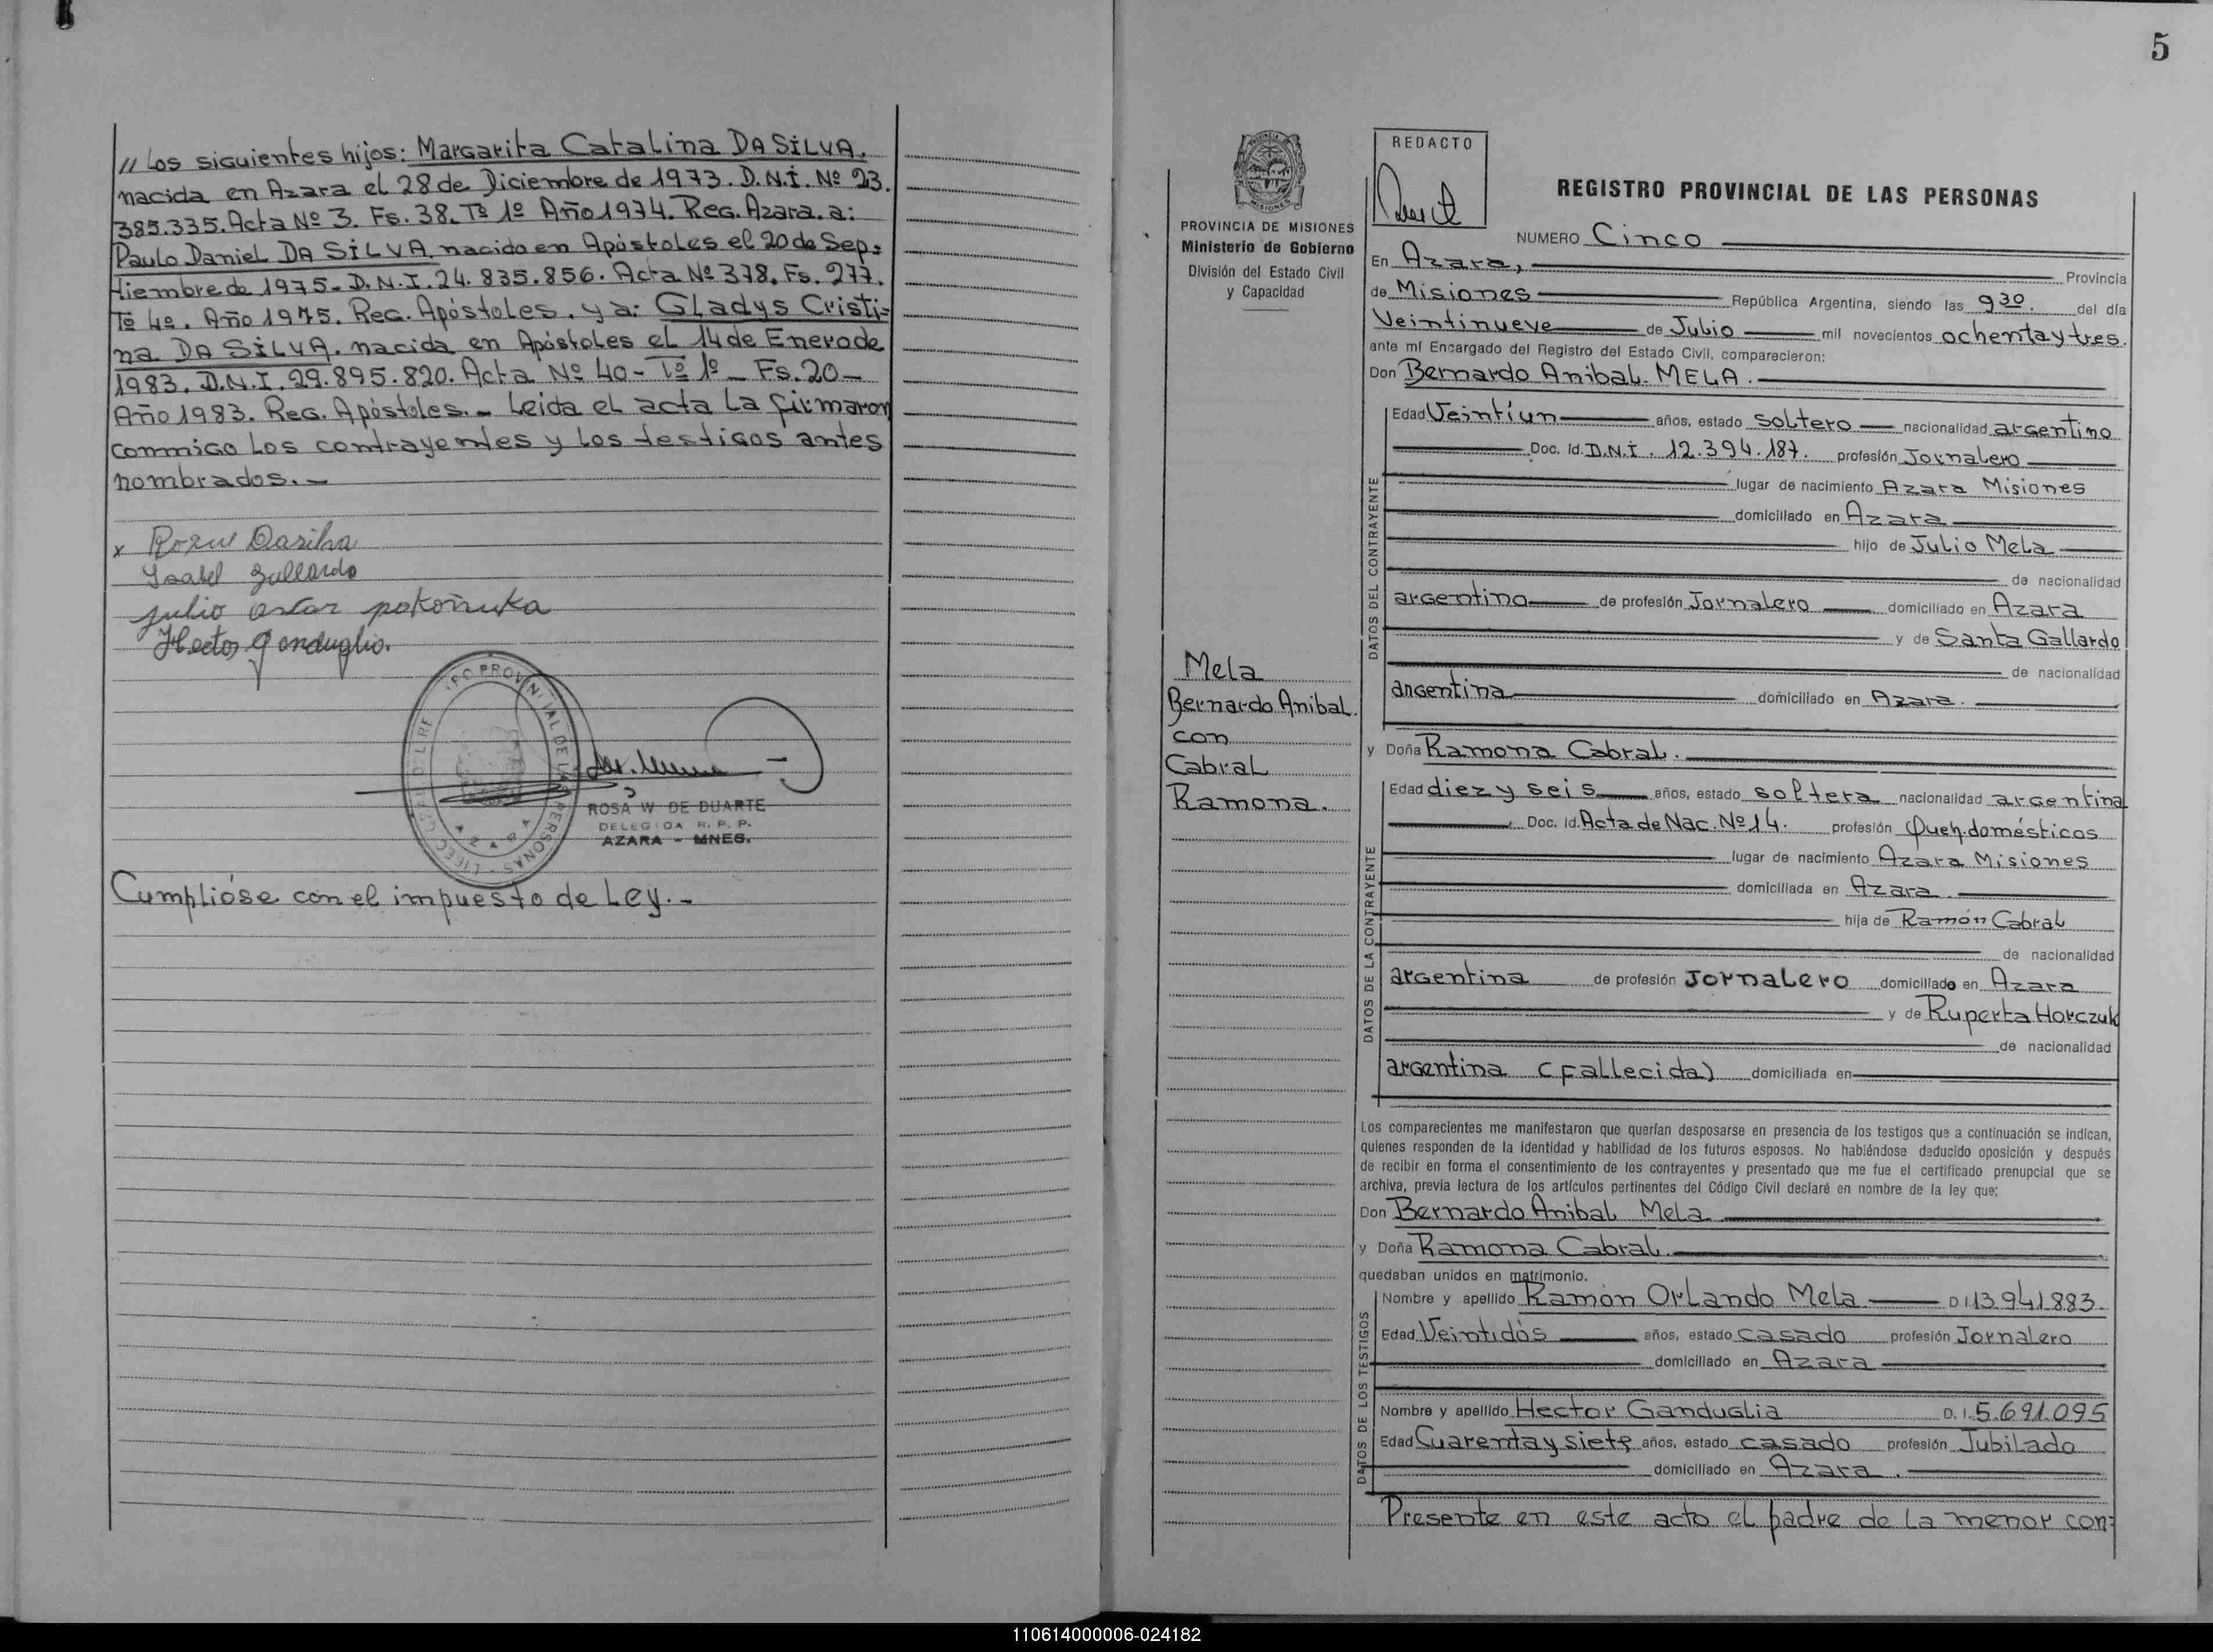 // Los siguientes hijos: Margarita Catalina DA SILVA.
nacida en Azara el 28 de Diciembre de 1973. D.N.I. Nº 23.
385.335. Acta Nº 3. Fs. 38. Tº 1º Año 1974. Reg. Azara. a:
Paulo Daniel DA SILVA. nacido en Apóstoles el 20 de Sep=
tiembre de 1975. D.N.I. 24.835.856. Acta Nº 378. Fs. 277.
Tº 4º. Año 1975. Reg. Apóstoles. y a: Gladys Cristi=
na DA SILVA. nacida en Apóstoles el 14 de Enero de
1983. D.N.I. 29.895.820. Acta Nº 40 - Tº 1º - Fs. 20 -
Año 1983. Reg. Apóstoles. - Leida el acta la firmaron
conmigo los contrayentes y los testigos antes
nombrados. -
x Dasilva
Isabel Gallardo
julio oscar
Hector Ganduglia.
ROSA W DE DUARTE
DELEGADA R. P. P.
AZARA - MNES.
Cumplióse con el impuesto de Ley. -
5
PROVINCIA DE MISIONES
Ministerio de Gobierno
División del Estado Civil
y Capacidad
Mela
Bernardo Anibal.
con
Cabral
Ramona.
REDACTO
REGISTRO PROVINCIAL DE LAS PERSONAS
NUMERO Cinco
En Azara, Provincia
de Misiones República Argentina, siendo las 9 30. del día
Veintinueve de Julio mil novecientos ochenta y tres.
ante mí Encargado del Registro del Estado Civil, comparecieron:
Don Bernardo Anibal MELA.
DATOS DEL CONTRAYENTE
Edad Veintiun años, estado soltero nacionalidad argentino
Doc. Id. D.N.I. 12.394.187. profesión Jornalero
lugar de nacimiento Azara Misiones
domiciliado en Azara
hijo de Julio Mela
de nacionalidad
argentino de profesión Jornalero domiciliado en Azara
y de Santa Gallardo
de nacionalidad
argentina domiciliado en Azara.
y Doña Ramona Cabral.
DATOS DE LA CONTRAYENTE
Edad diez y seis años, estado soltera nacionalidad argentina
Doc. Id. Acta de Nac. Nº 14. profesión Queh. domésticos
lugar de nacimiento Azara Misiones
domiciliada en Azara.
hija de Ramón Cabral
de nacionalidad
argentina de profesión Jornalero domiciliado en Azara
y de Ruperta Horczuk
de nacionalidad
argentina (fallecida) domiciliada en
Los comparecientes me manifestaron que querían desposarse en presencia de los testigos que a continuación se indican,
quienes responden de la identidad y habilidad de los futuros esposos. No habiéndose deducido oposición y después
de recibir en forma el consentimiento de los contrayentes y presentado que me fue el certificado prenupcial que se
archiva, previa lectura de los artículos pertinentes del Código Civil declaré en nombre de la ley que:
Don Bernardo Anibal Mela
y Doña Ramona Cabral.
quedaban unidos en matrimonio.
DATOS DE LOS TESTIGOS
Nombre y apellido Ramón Orlando Mela D.I. 13.941.883.
Edad Veintidós años, estado casado profesión Jornalero
domiciliado en Azara
Nombre y apellido Hector Ganduglia D.I. 5.691.095
Edad Cuarenta y siete años, estado casado profesión Jubilado
domiciliado en Azara.
Presente en este acto el padre de la menor con=
110614000006-024182